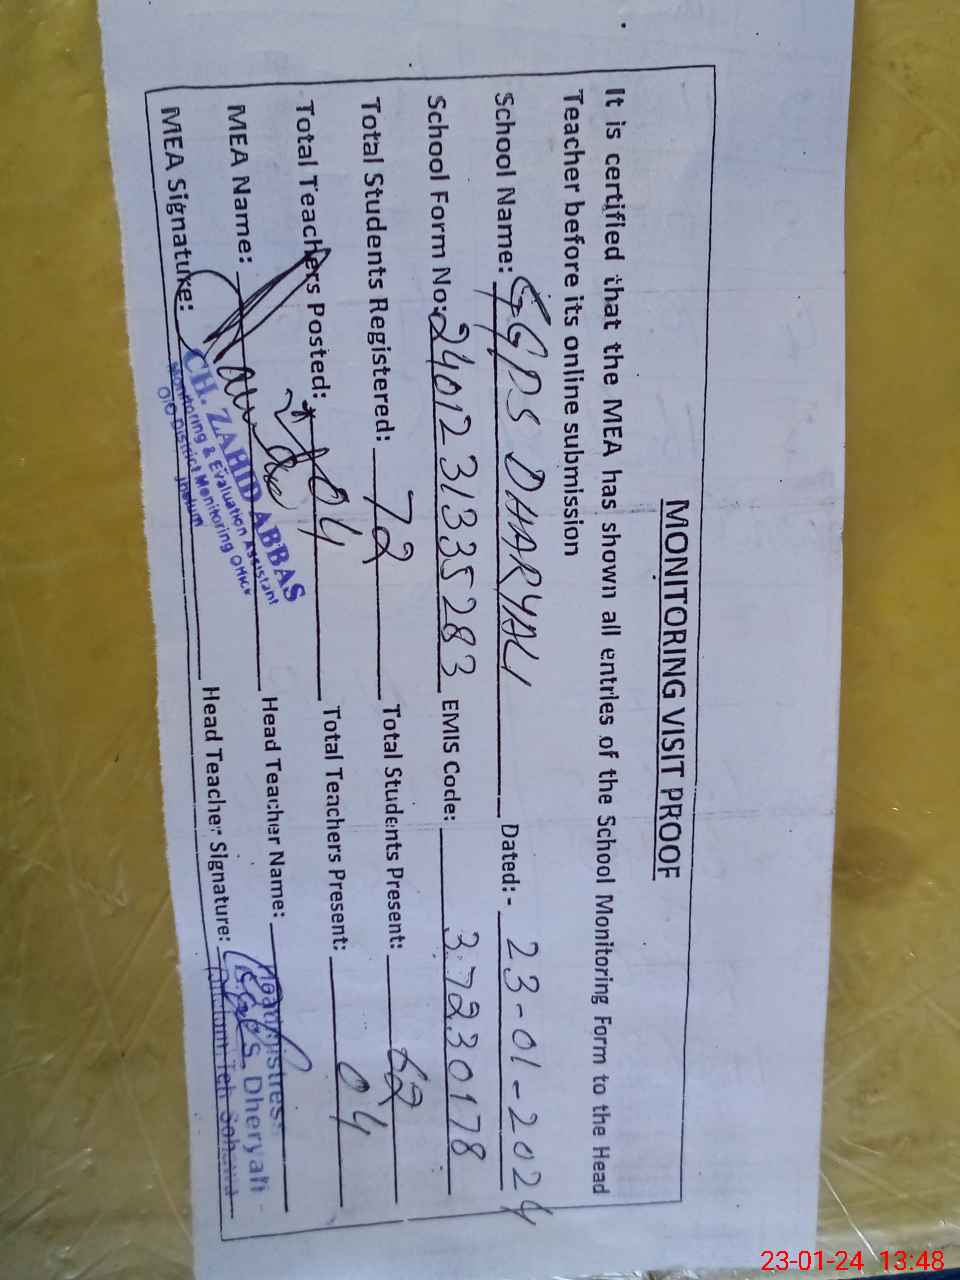 MONITORING VISIT PROOF
It is certified that the MEA has shown all entries of the School Monitoring Form to the Head
Teacher before its online submission
School Name: GGPS DHARYALI Dated:- 23-01-2024
School Form No: 2401231335283 EMIS Code: 37230178
Total Students Registered: 72 Total Students Present: 62
Total Teachers Posted: 04 Total Teachers Present: 04
MEA Name: Head Teacher Name:
MEA Signature: Head Teacher Signature:
CH. ZAHID ABBAS
Monitoring & Evaluation Assistant
O/O District Monitoring Office
Jhelum
Headmistress
G.G.P.S. Dheryali
23-01-24 13:48